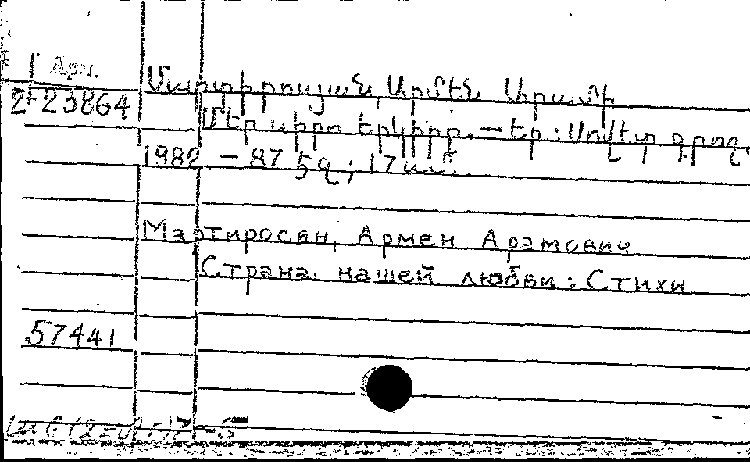 Арм.
2-23864
Մարտիրոսյան, Արմեն Արամի
Մեր սիրո երկիրը. — Եր.: Սովետ. գրող,
1982 — 87 էջ; 17 սմ.
Мартиросян, Армен Арамович
Страна нашей любви: Стихи
57441